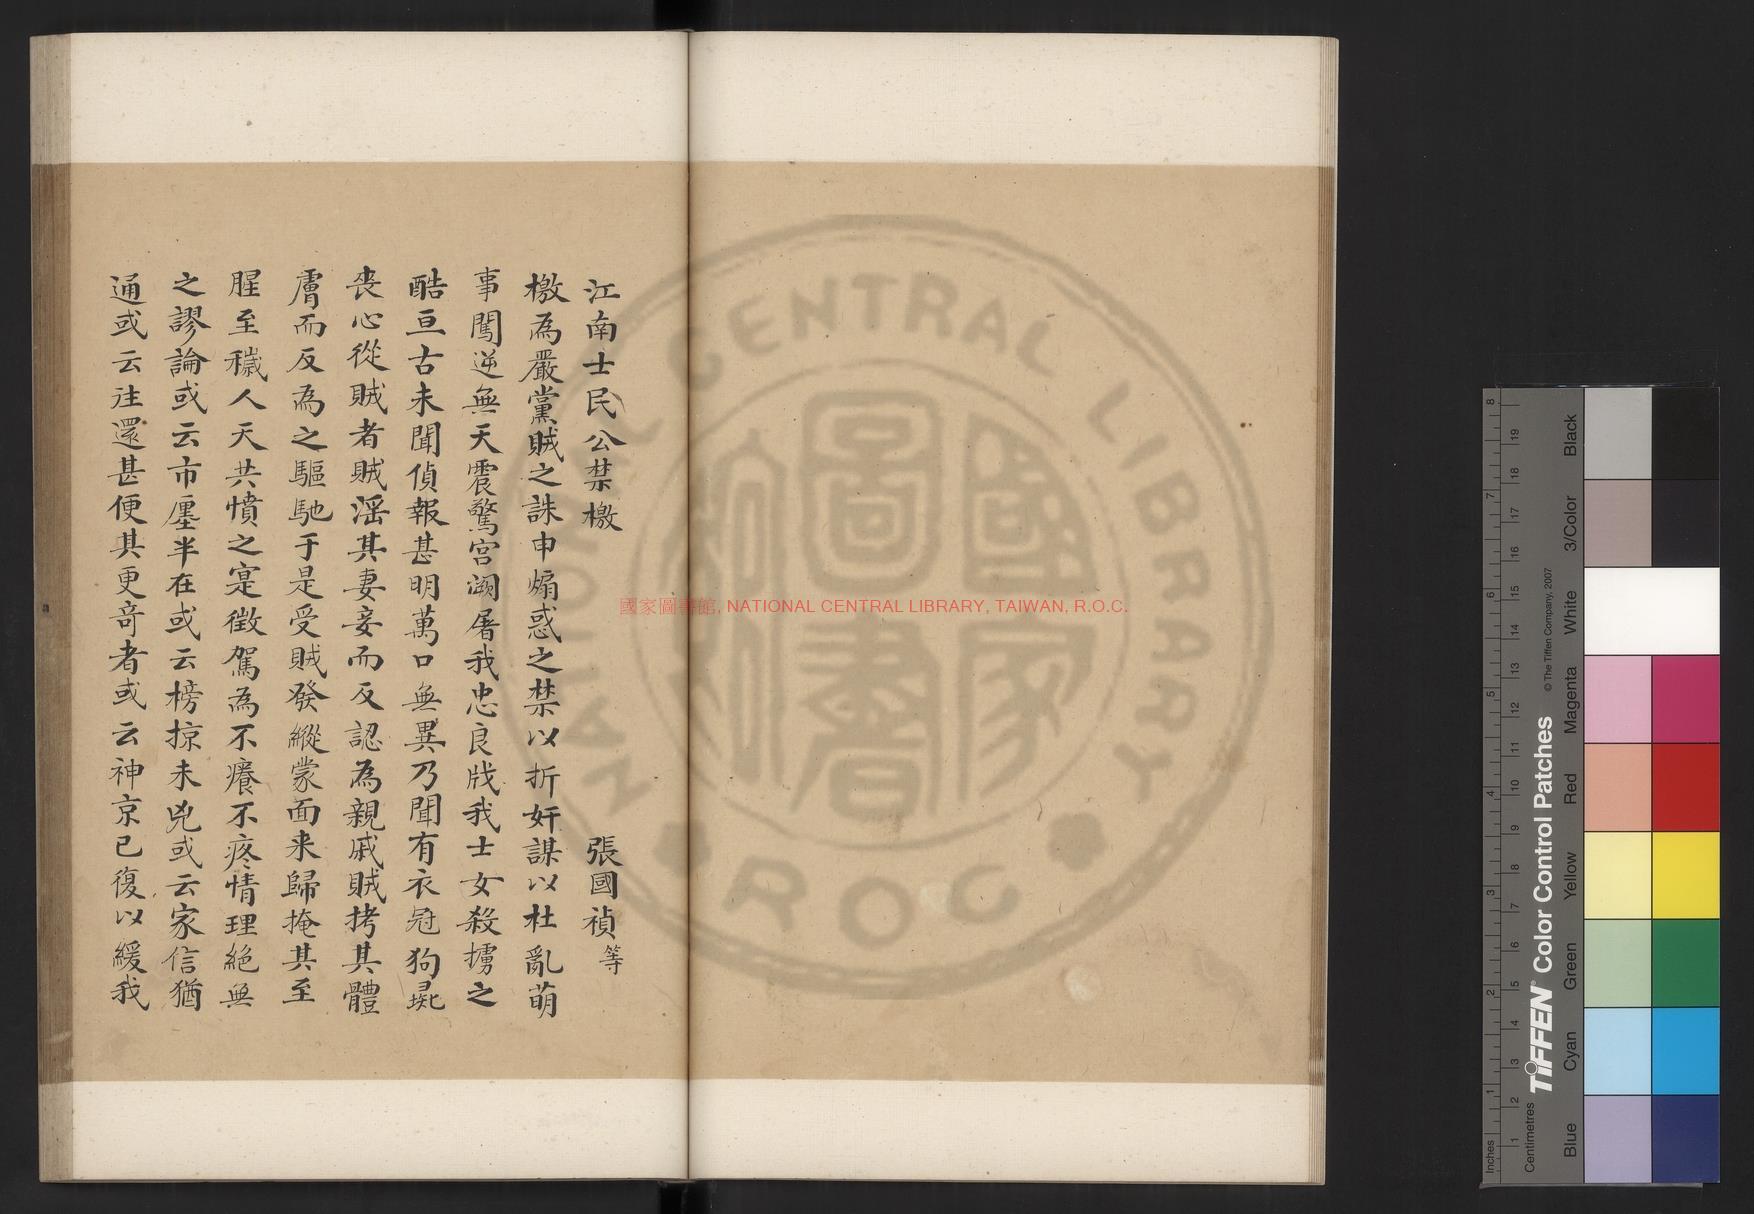 江南士民公禁檄 張國禎等
檄為嚴黨賊之誅申煽惑之禁以折奸謀以杜亂萌
事闖逆無天震驚宮闕屠我忠良戕我士女殺擄之
酷亘古未聞偵報甚明萬口無異乃聞有衣冠狗彘
喪心從賊者賊淫其妻妾而反認為親戚賊拷其體
膚而反為之驅馳于是受賊發縱蒙面来歸掩其至
腥至穢人天共憤之寔徵駕為不癢不疼情理絕無
之謬論或云市廛半在或云榜掠未兇或云家信猶
通或云往還甚便其更竒者或云神京已復以緩我
國家圖書館, NATIONAL CENTRAL LIBRARY, TAIWAN, R.O.C.
NATIONAL CENTRAL LIBRARY
ROC
國家圖書館
Inches
Centimetres
TIFFEN Color Control Patches
© The Tiffen Company, 2007
Blue
Cyan
Green
Yellow
Red
Magenta
White
3/Color
Black